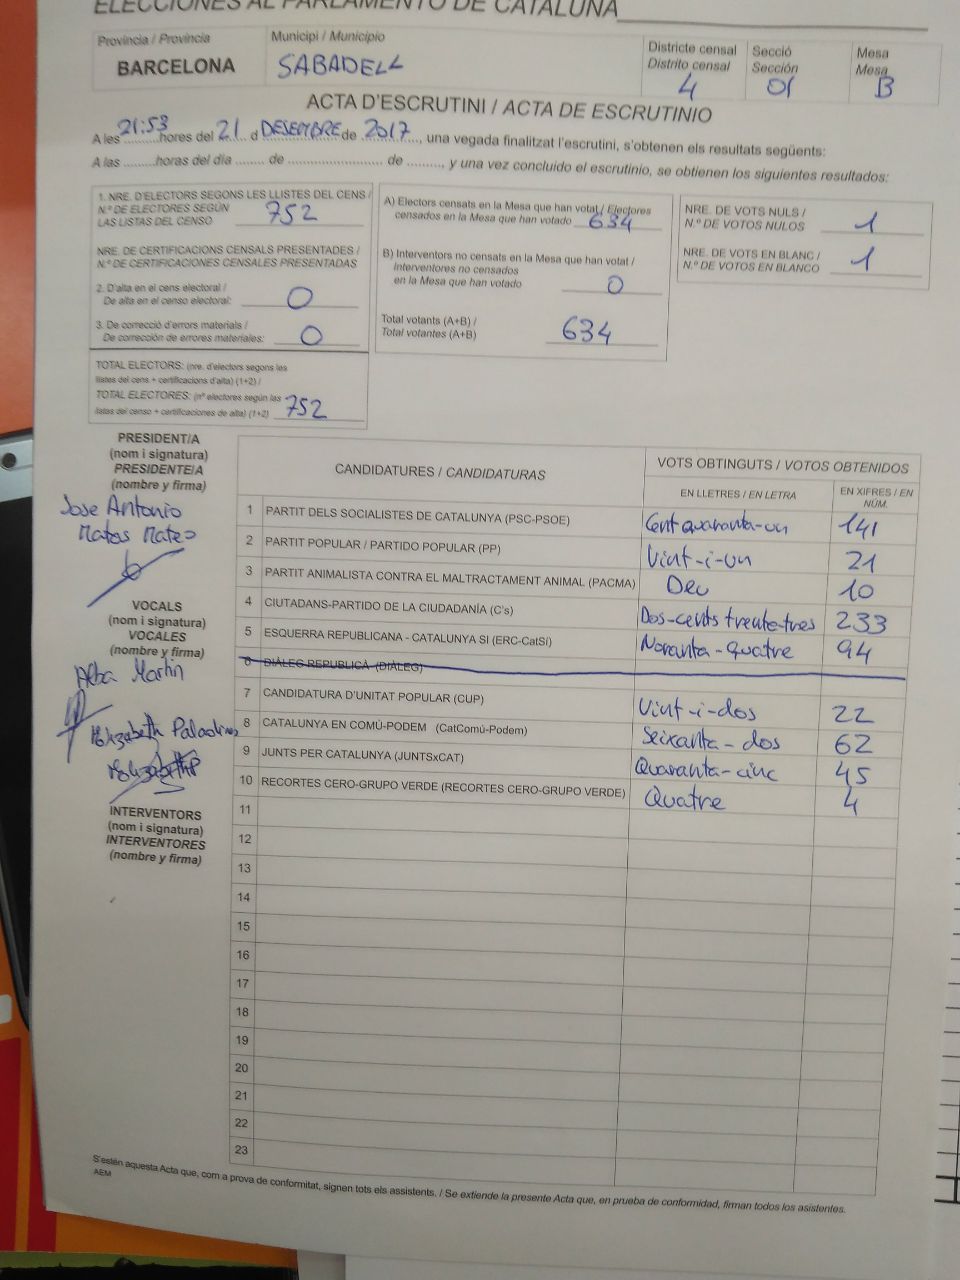 ELECCIONES AL PARLAMENTO DE CATALUÑA
Província / Provincia
BARCELONA
Municipi / Municipio
SABADELL
Districte censal
Distrito censal
4
Secció
Sección
01
Mesa
Mesa
B
ACTA D'ESCRUTINI / ACTA DE ESCRUTINIO
A les 21:53 hores del 21 d DESEMBRE de 2017, una vegada finalitzat l'escrutini, s'obtenen els resultats següents:
A las ..........horas del día ........ de .......................... de .........., y una vez concluido el escrutinio, se obtienen los siguientes resultados:
1. NRE. D'ELECTORS SEGONS LES LLISTES DEL CENS /
N.º DE ELECTORES SEGÚN
LAS LISTAS DEL CENSO 752
NRE. DE CERTIFICACIONS CENSALS PRESENTADES /
N.º DE CERTIFICACIONES CENSALES PRESENTADAS
2. D'alta en el cens electoral /
De alta en el censo electoral: 0
3. De correcció d'errors materials /
De corrección de errores materiales: 0
TOTAL ELECTORS: (nre. d'electors segons les
llistes del cens + certificacions d'alta) (1+2) /
TOTAL ELECTORES. (nº electores según las
listas del censo + certificaciones de alta) (1+2) 752
A) Electors censats en la Mesa que han votat / Electores
censados en la Mesa que han votado 634
B) Interventors no censats en la Mesa que han votat /
Interventores no censados
en la Mesa que han votado 0
Total votants (A+B) /
Total votantes (A+B) 634
NRE. DE VOTS NULS /
N.º DE VOTOS NULOS 1
NRE. DE VOTS EN BLANC /
N.º DE VOTOS EN BLANCO 1
PRESIDENT/A
(nom i signatura)
PRESIDENTE/A
(nombre y firma)
Jose Antonio
Matos Mateo
VOCALS
(nom i signatura)
VOCALES
(nombre y firma)
Alba Martin
INTERVENTORS
(nom i signatura)
INTERVENTORES
(nombre y firma)
CANDIDATURES / CANDIDATURAS
VOTS OBTINGUTS / VOTOS OBTENIDOS
EN LLETRES / EN LETRA
EN XIFRES / EN
NÚM.
1 PARTIT DELS SOCIALISTES DE CATALUNYA (PSC-PSOE) Cent quaranta-un 141
2 PARTIT POPULAR / PARTIDO POPULAR (PP) Vint-i-un 21
3 PARTIT ANIMALISTA CONTRA EL MALTRACTAMENT ANIMAL (PACMA) Deu 10
4 CIUTADANS-PARTIDO DE LA CIUDADANÍA (C's) Dos-cents trente-tres 233
5 ESQUERRA REPUBLICANA - CATALUNYA SI (ERC-CatSí) Noranta-quatre 94
6 DIÀLEG REPUBLICÀ (DIÀLEG)
7 CANDIDATURA D'UNITAT POPULAR (CUP) Vint-i-dos 22
8 CATALUNYA EN COMÚ-PODEM (CatComú-Podem) Seixanta-dos 62
9 JUNTS PER CATALUNYA (JUNTSxCAT) Quaranta-cinc 45
10 RECORTES CERO-GRUPO VERDE (RECORTES CERO-GRUPO VERDE) Quatre 4
11
12
13
14
15
16
17
18
19
20
21
22
23
S'estén aquesta Acta que, com a prova de conformitat, signen tots els assistents. / Se extiende la presente Acta que, en prueba de conformidad, firman todos los asistentes.
AEM